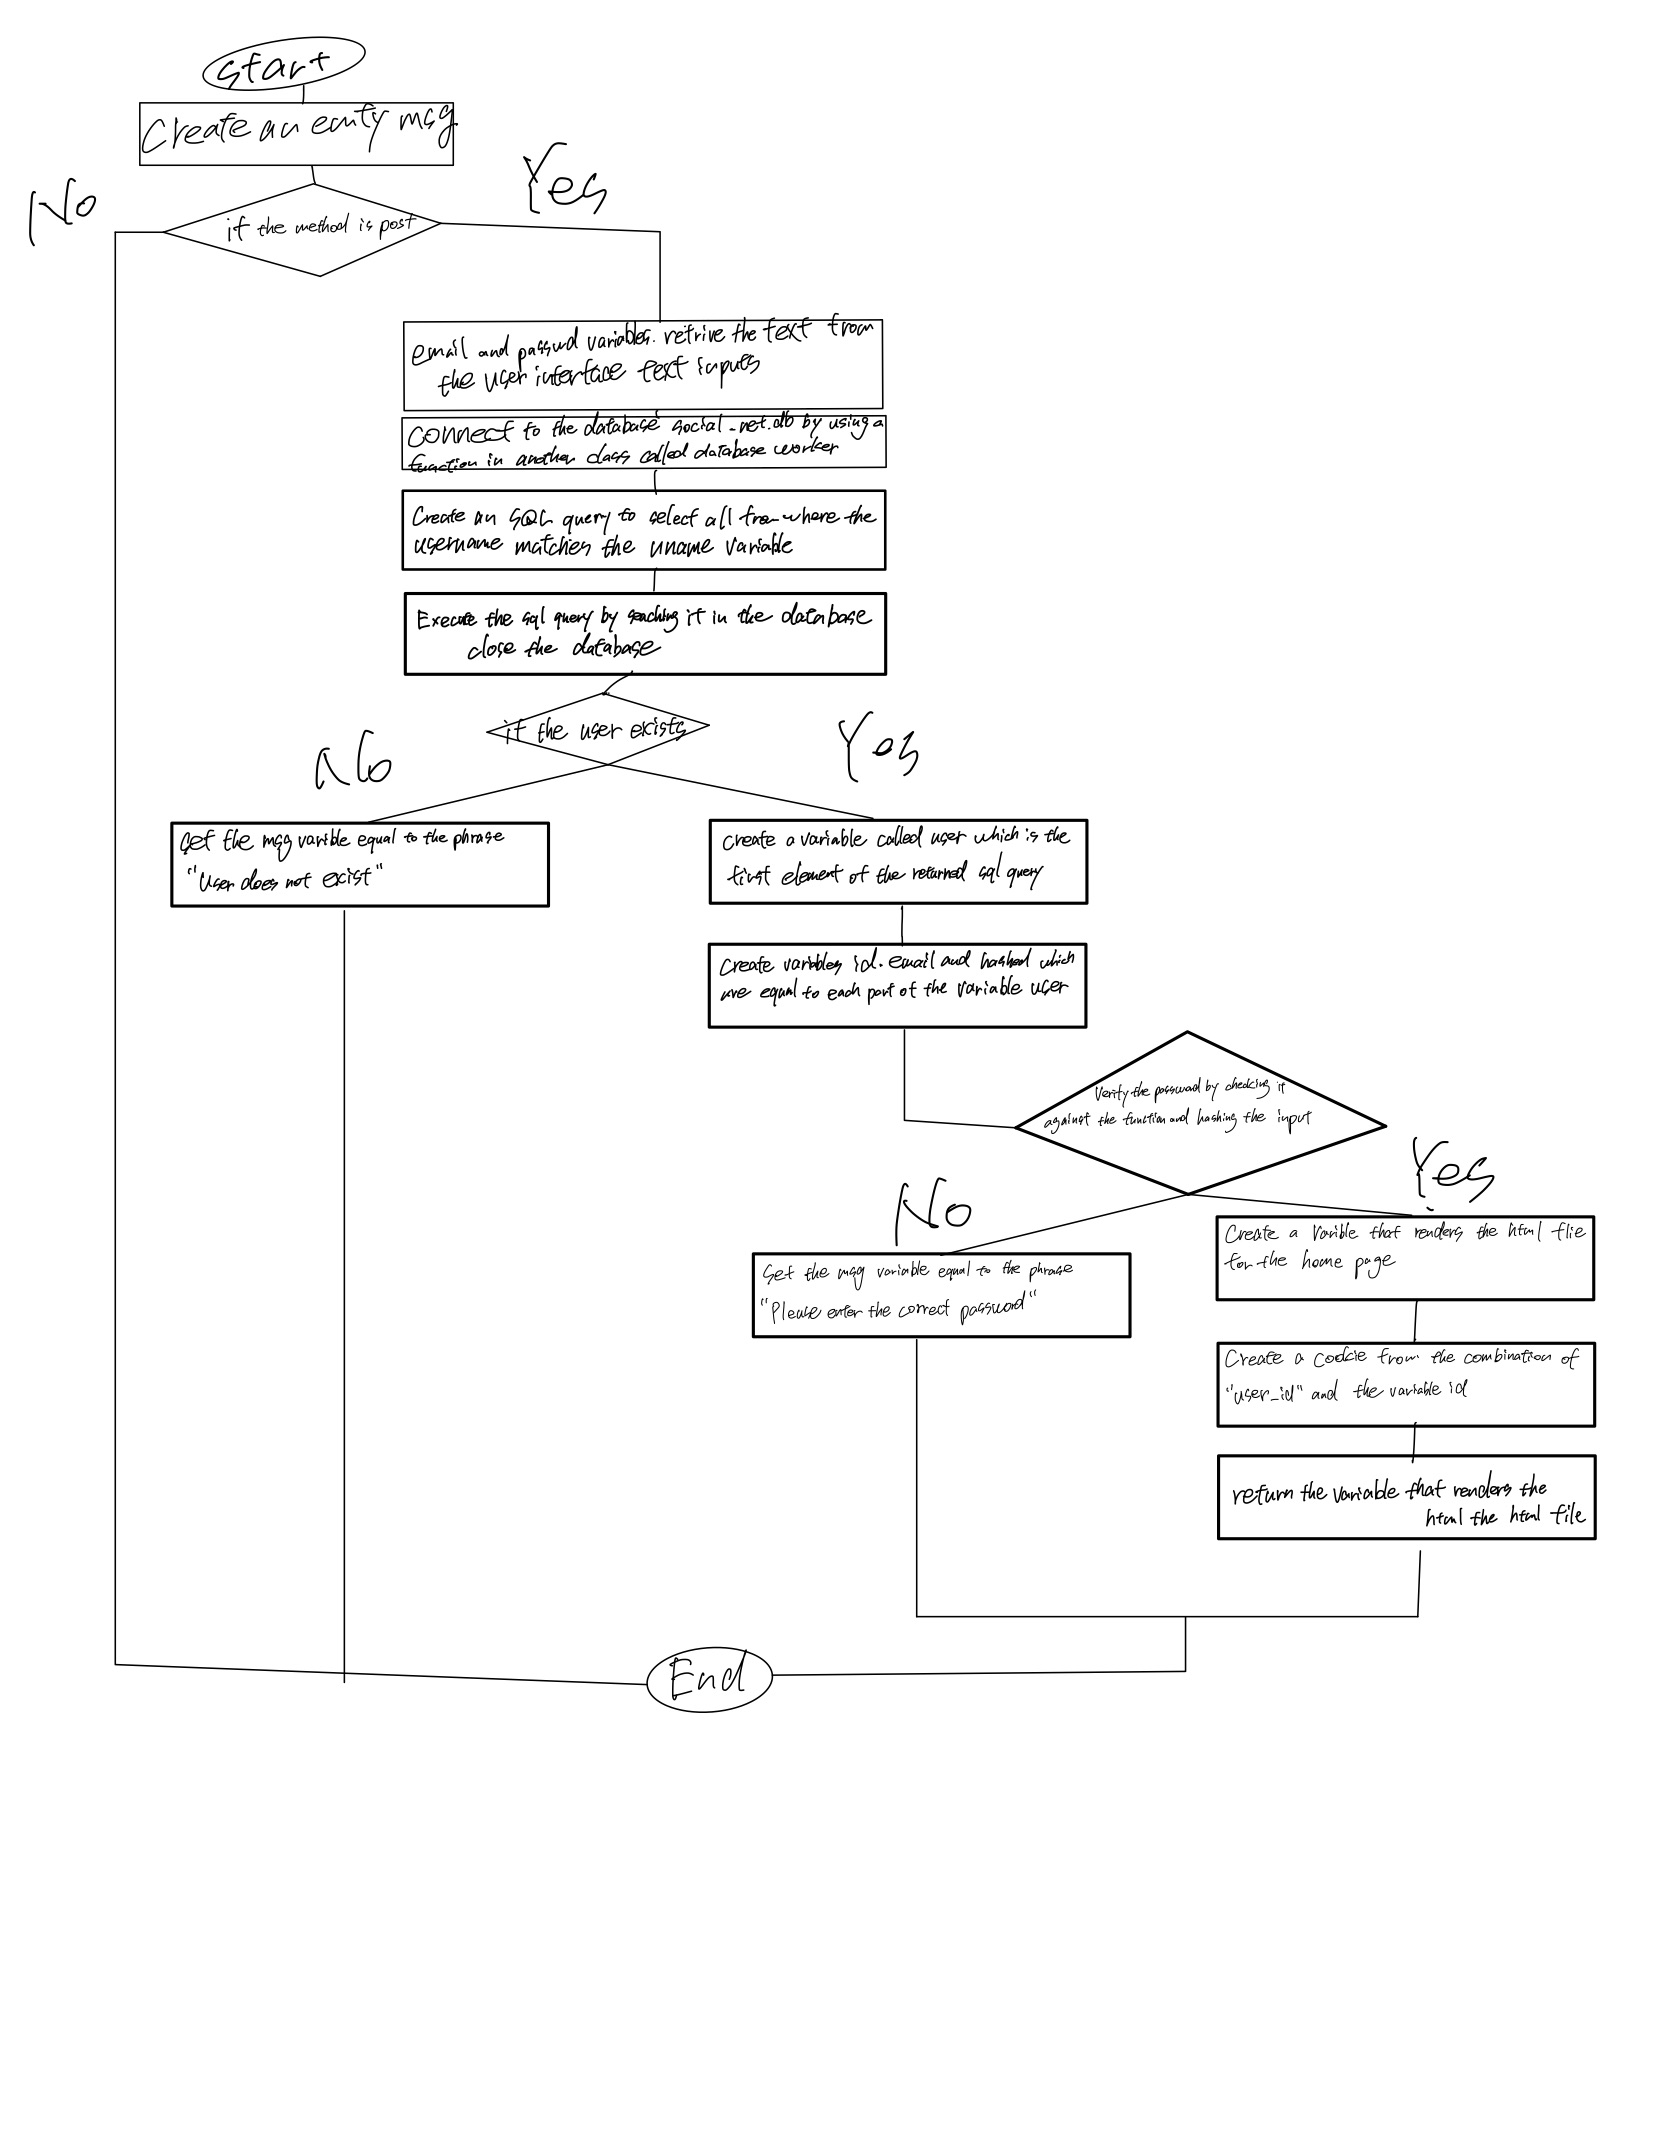 start
Create an emty msg
No
Yes
if the method is post
email and passwd variables. retrive the text from
the user interface text inputs
connect to the database social_net.db by using a
function in another class called database worker
Create an SQL query to select all from where the
username matches the uname variable
Execute the sql query by seaching it in the database
close the database
if the user exists
No
Yes
set the msg varible equal to the phrase
"User does not exist"
create a variable called user which is the
first element of the returned sql query
Create variables id. email and hashed which
are equal to each part of the variable user
Verify the password by checking it
against the function and hashing the input
No
Yes
Set the msg variable equal to the phrase
"Please enter the correct password"
Create a varible that renders the html flie
for the home page
Create a cookie from the combination of
"user_id" and the variable id
return the variable that renders the
html the html file
End